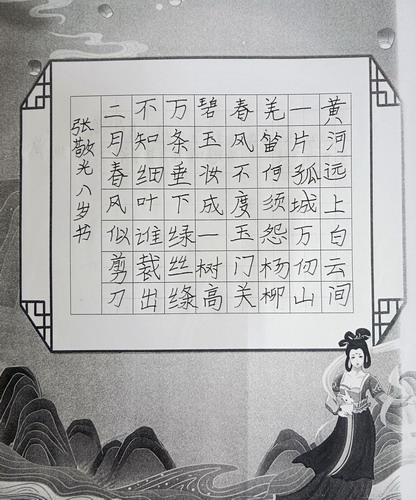 黄河远上白云间
一片孤城万仞山
羌笛何须怨杨柳
春风不度玉门关
碧玉妆成一树高
万条垂下绿丝绦
不知细叶谁裁出
二月春风似剪刀
张敬光八岁书